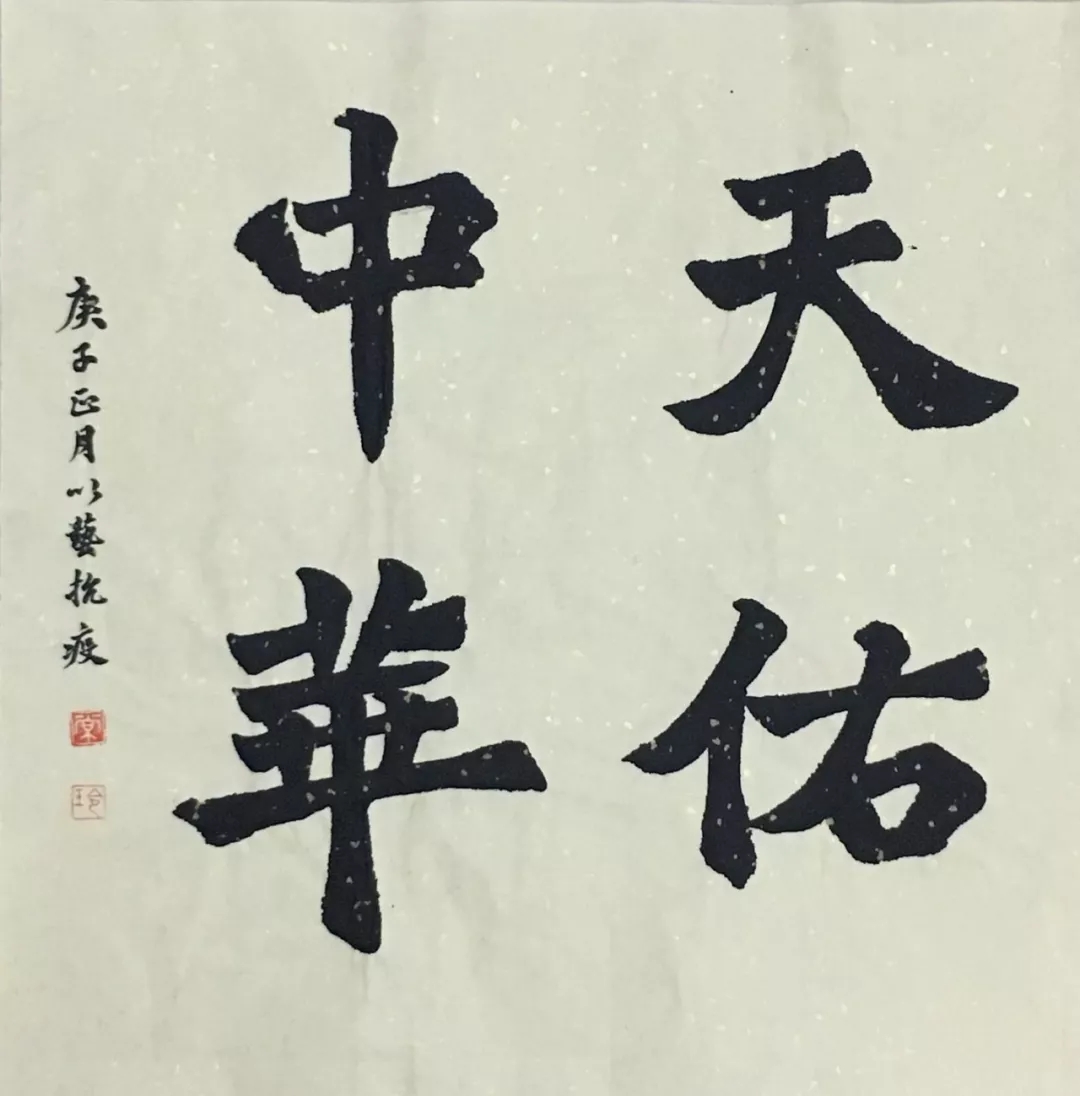 天佑
中華
庚子正月以藝抗疫